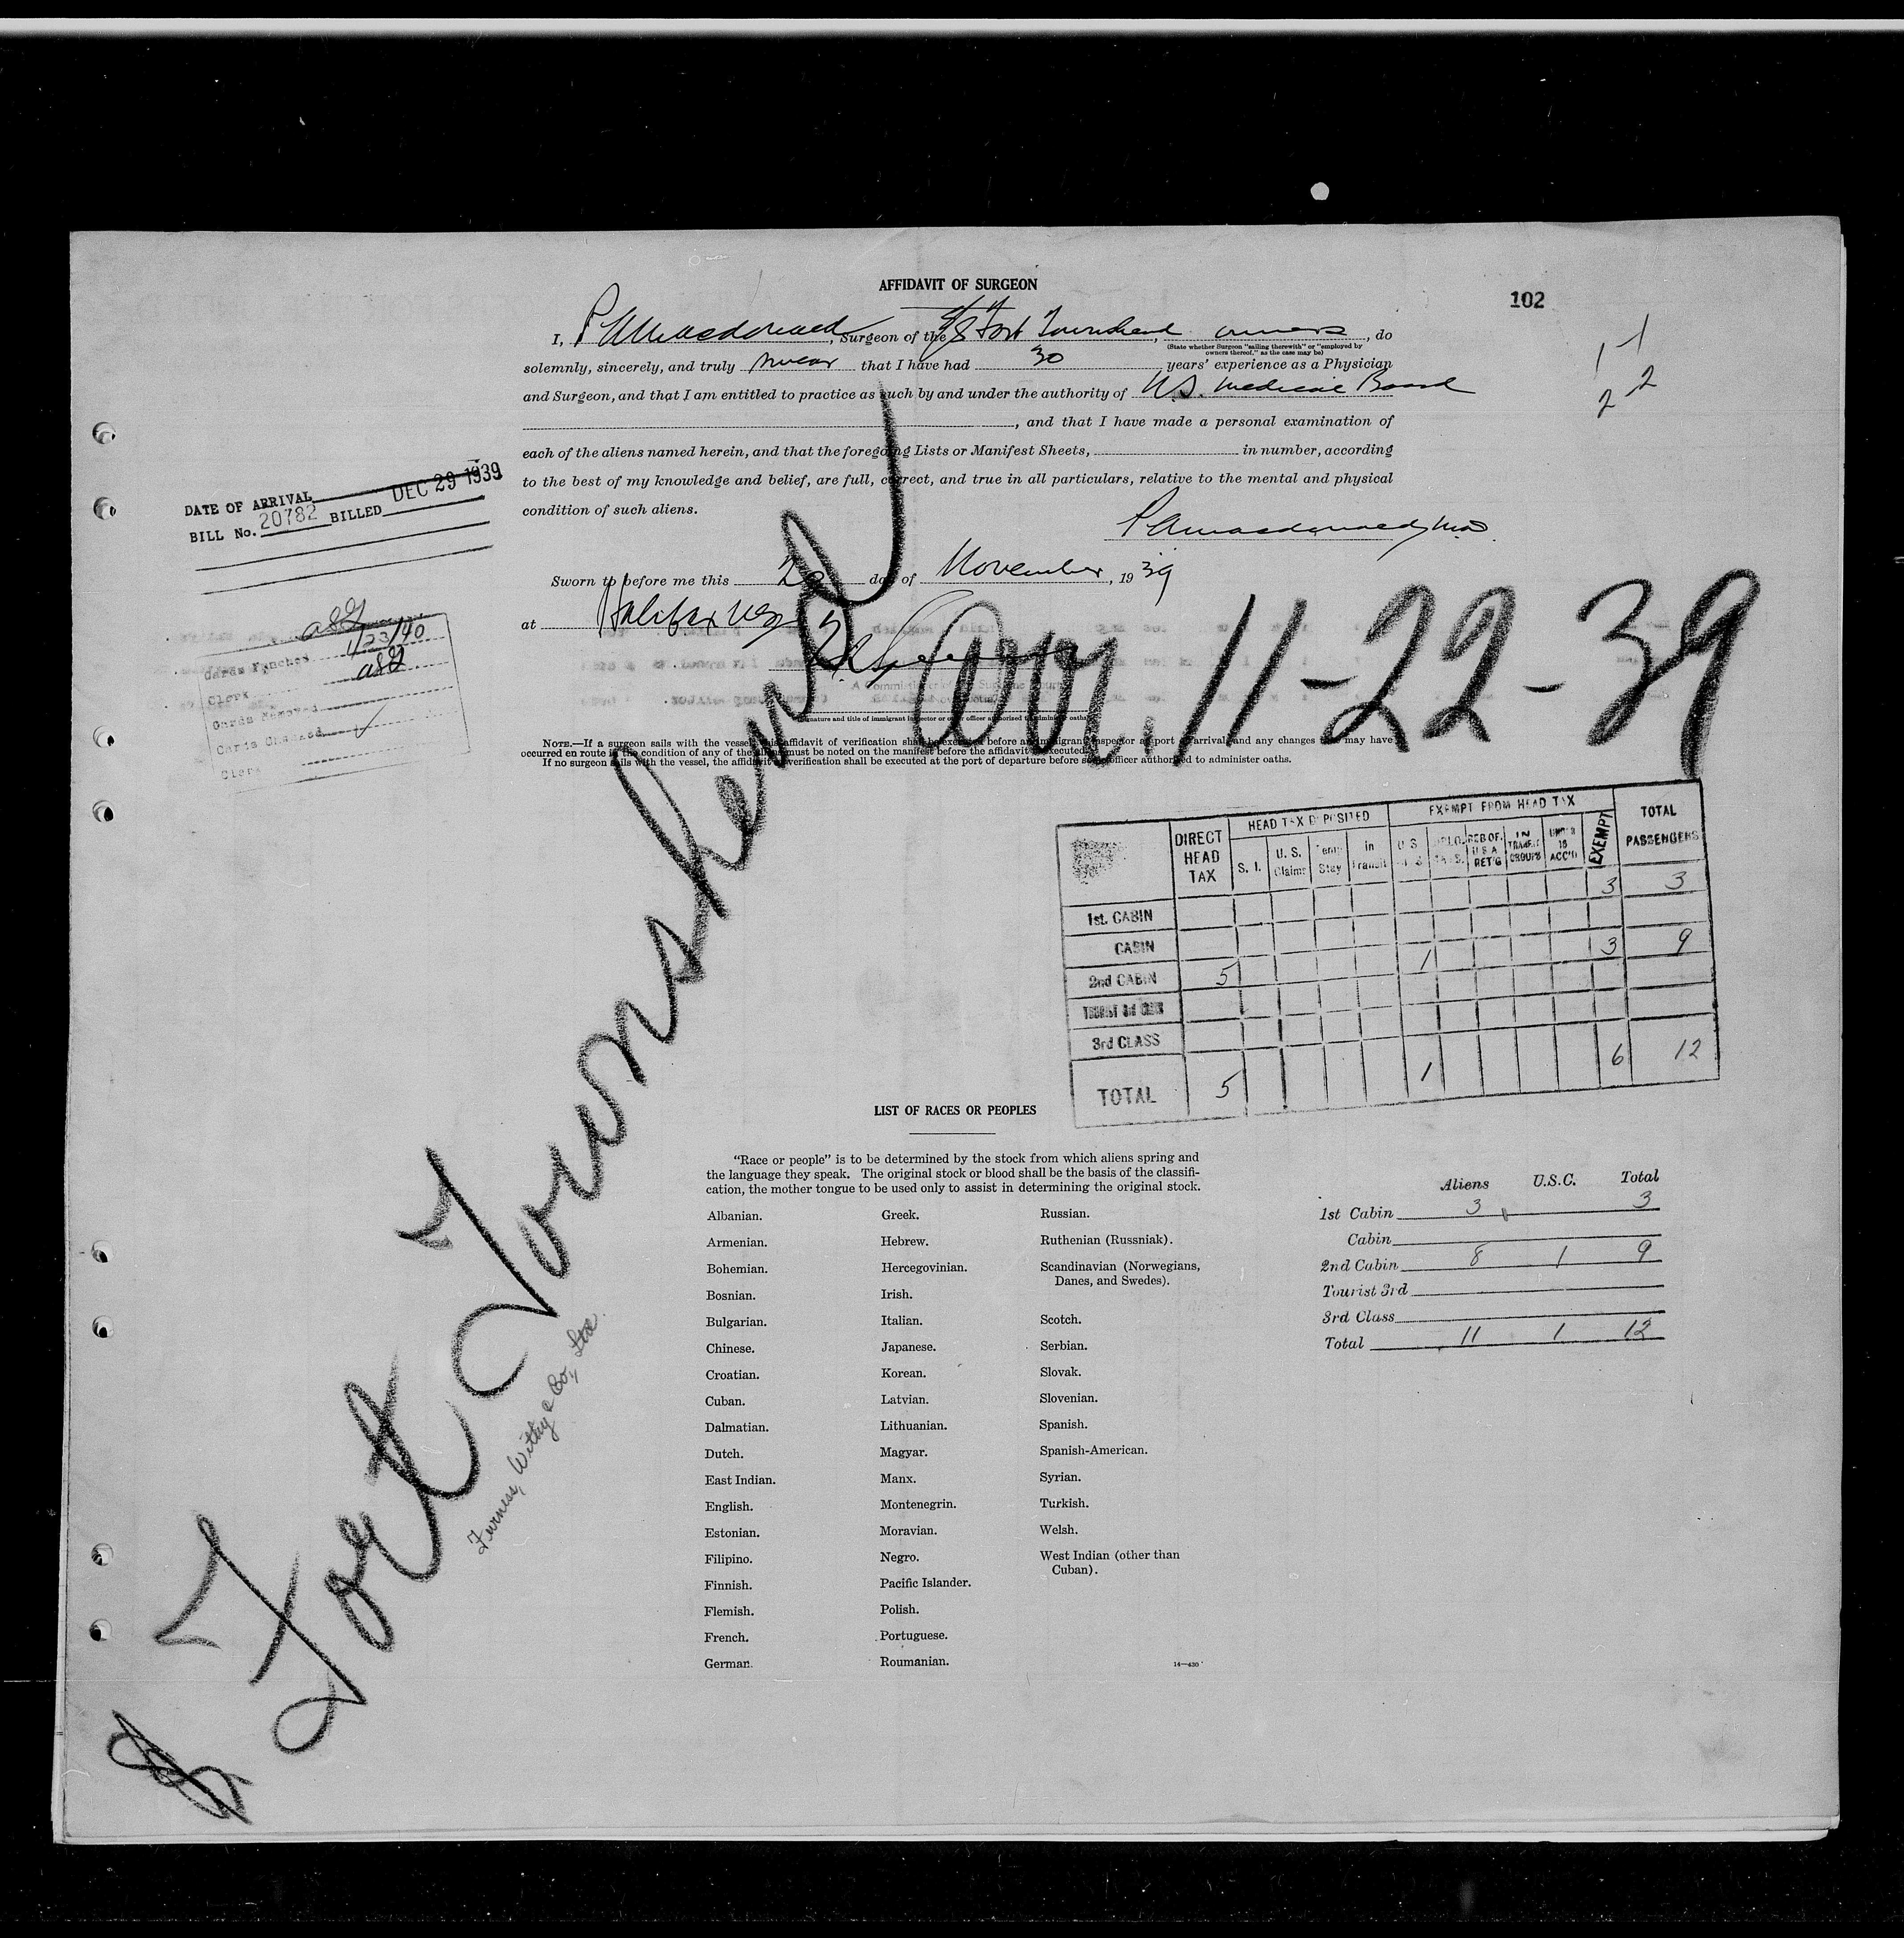 AFFIDAVIT OF SURGEON
102
I, Macdonald, Surgeon of the Fort Townshend, owners, do
(State whether Surgeon "sailing therewith" or "employed by
owners thereof," as the case may be)
solemnly, sincerely, and truly swear that I have had 30 years' experience as a Physician
and Surgeon, and that I am entitled to practice as such by and under the authority of N.S. Medical Board
, and that I have made a personal examination of
each of the aliens named herein, and that the foregoing Lists or Manifest Sheets, in number, according
to the best of my knowledge and belief, are full, correct, and true in all particulars, relative to the mental and physical
condition of such aliens.
Macdonald, M.D.
1 1
2 2
DATE OF ARRIVAL DEC 29 1939
BILL No. 20782 BILLED
Sworn to before me this 20 day of November, 1939
at Halifax N.S.
1/23/40
Cards Punched
Clerk
Cards Removed
Cards Checked
Clerk
Arr. 11-22-39
(Signature and title of immigrant inspector or other officer authorised to administer oaths)
NOTE.—If a surgeon sails with the vessel, this affidavit of verification shall be executed before an immigrant inspector at port of arrival and any changes that may have
occurred en route in the condition of any of the aliens must be noted on the manifest before the affidavit is executed.
If no surgeon sails with the vessel, the affidavit of verification shall be executed at the port of departure before some officer authorized to administer oaths.
Fort Townshend
Furness, Withy & Co., Ltd.
HEAD TAX DEPOSITED EXEMPT FROM HEAD TAX TOTAL PASSENGERS
DIRECT HEAD TAX S. I. U. S. Claims Temp Stay in Transit IN TRANSIT GROUPS UNDER 16 ACC'D EXEMPT
3 3
1st. CABIN
CABIN
2nd CABIN 5 1 3 9
TOURIST 3rd CABIN
3rd CLASS
TOTAL 5 1 6 12
LIST OF RACES OR PEOPLES
"Race or people" is to be determined by the stock from which aliens spring and
the language they speak. The original stock or blood shall be the basis of the classifi-
cation, the mother tongue to be used only to assist in determining the original stock.
Albanian.
Armenian.
Bohemian.
Bosnian.
Bulgarian.
Chinese.
Croatian.
Cuban.
Dalmatian.
Dutch.
East Indian.
English.
Estonian.
Filipino.
Finnish.
Flemish.
French.
German.
Greek.
Hebrew.
Hercegovinian.
Irish.
Italian.
Japanese.
Korean.
Latvian.
Lithuanian.
Magyar.
Manx.
Montenegrin.
Moravian.
Negro.
Pacific Islander.
Polish.
Portuguese.
Roumanian.
Russian.
Ruthenian (Russniak).
Scandinavian (Norwegians,
Danes, and Swedes).
Scotch.
Serbian.
Slovak.
Slovenian.
Spanish.
Spanish-American.
Syrian.
Turkish.
Welsh.
West Indian (other than
Cuban).
14—430
Aliens U.S.C. Total
1st Cabin 3 3
Cabin
2nd Cabin 8 1 9
Tourist 3rd
3rd Class
Total 11 1 12